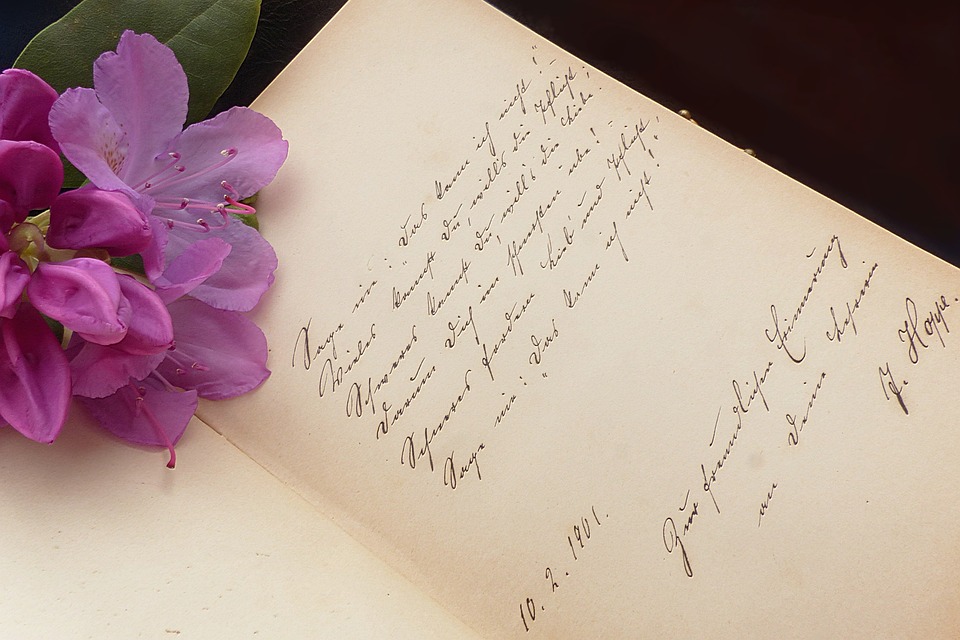 Sage nie: „Das kann ich nicht!" –
Vieles kannst du, will's die Pflicht;
Schweres kannst du, will's die Liebe;
Darum dich im Schwersten übe! –
Schweres fordern Lieb' und Pflicht;
Sage nie: „Das kann ich nicht!"
Zur freundlichen Erinnerung
an deine Lehrerin
Hoppe.
10. 2. 1901.